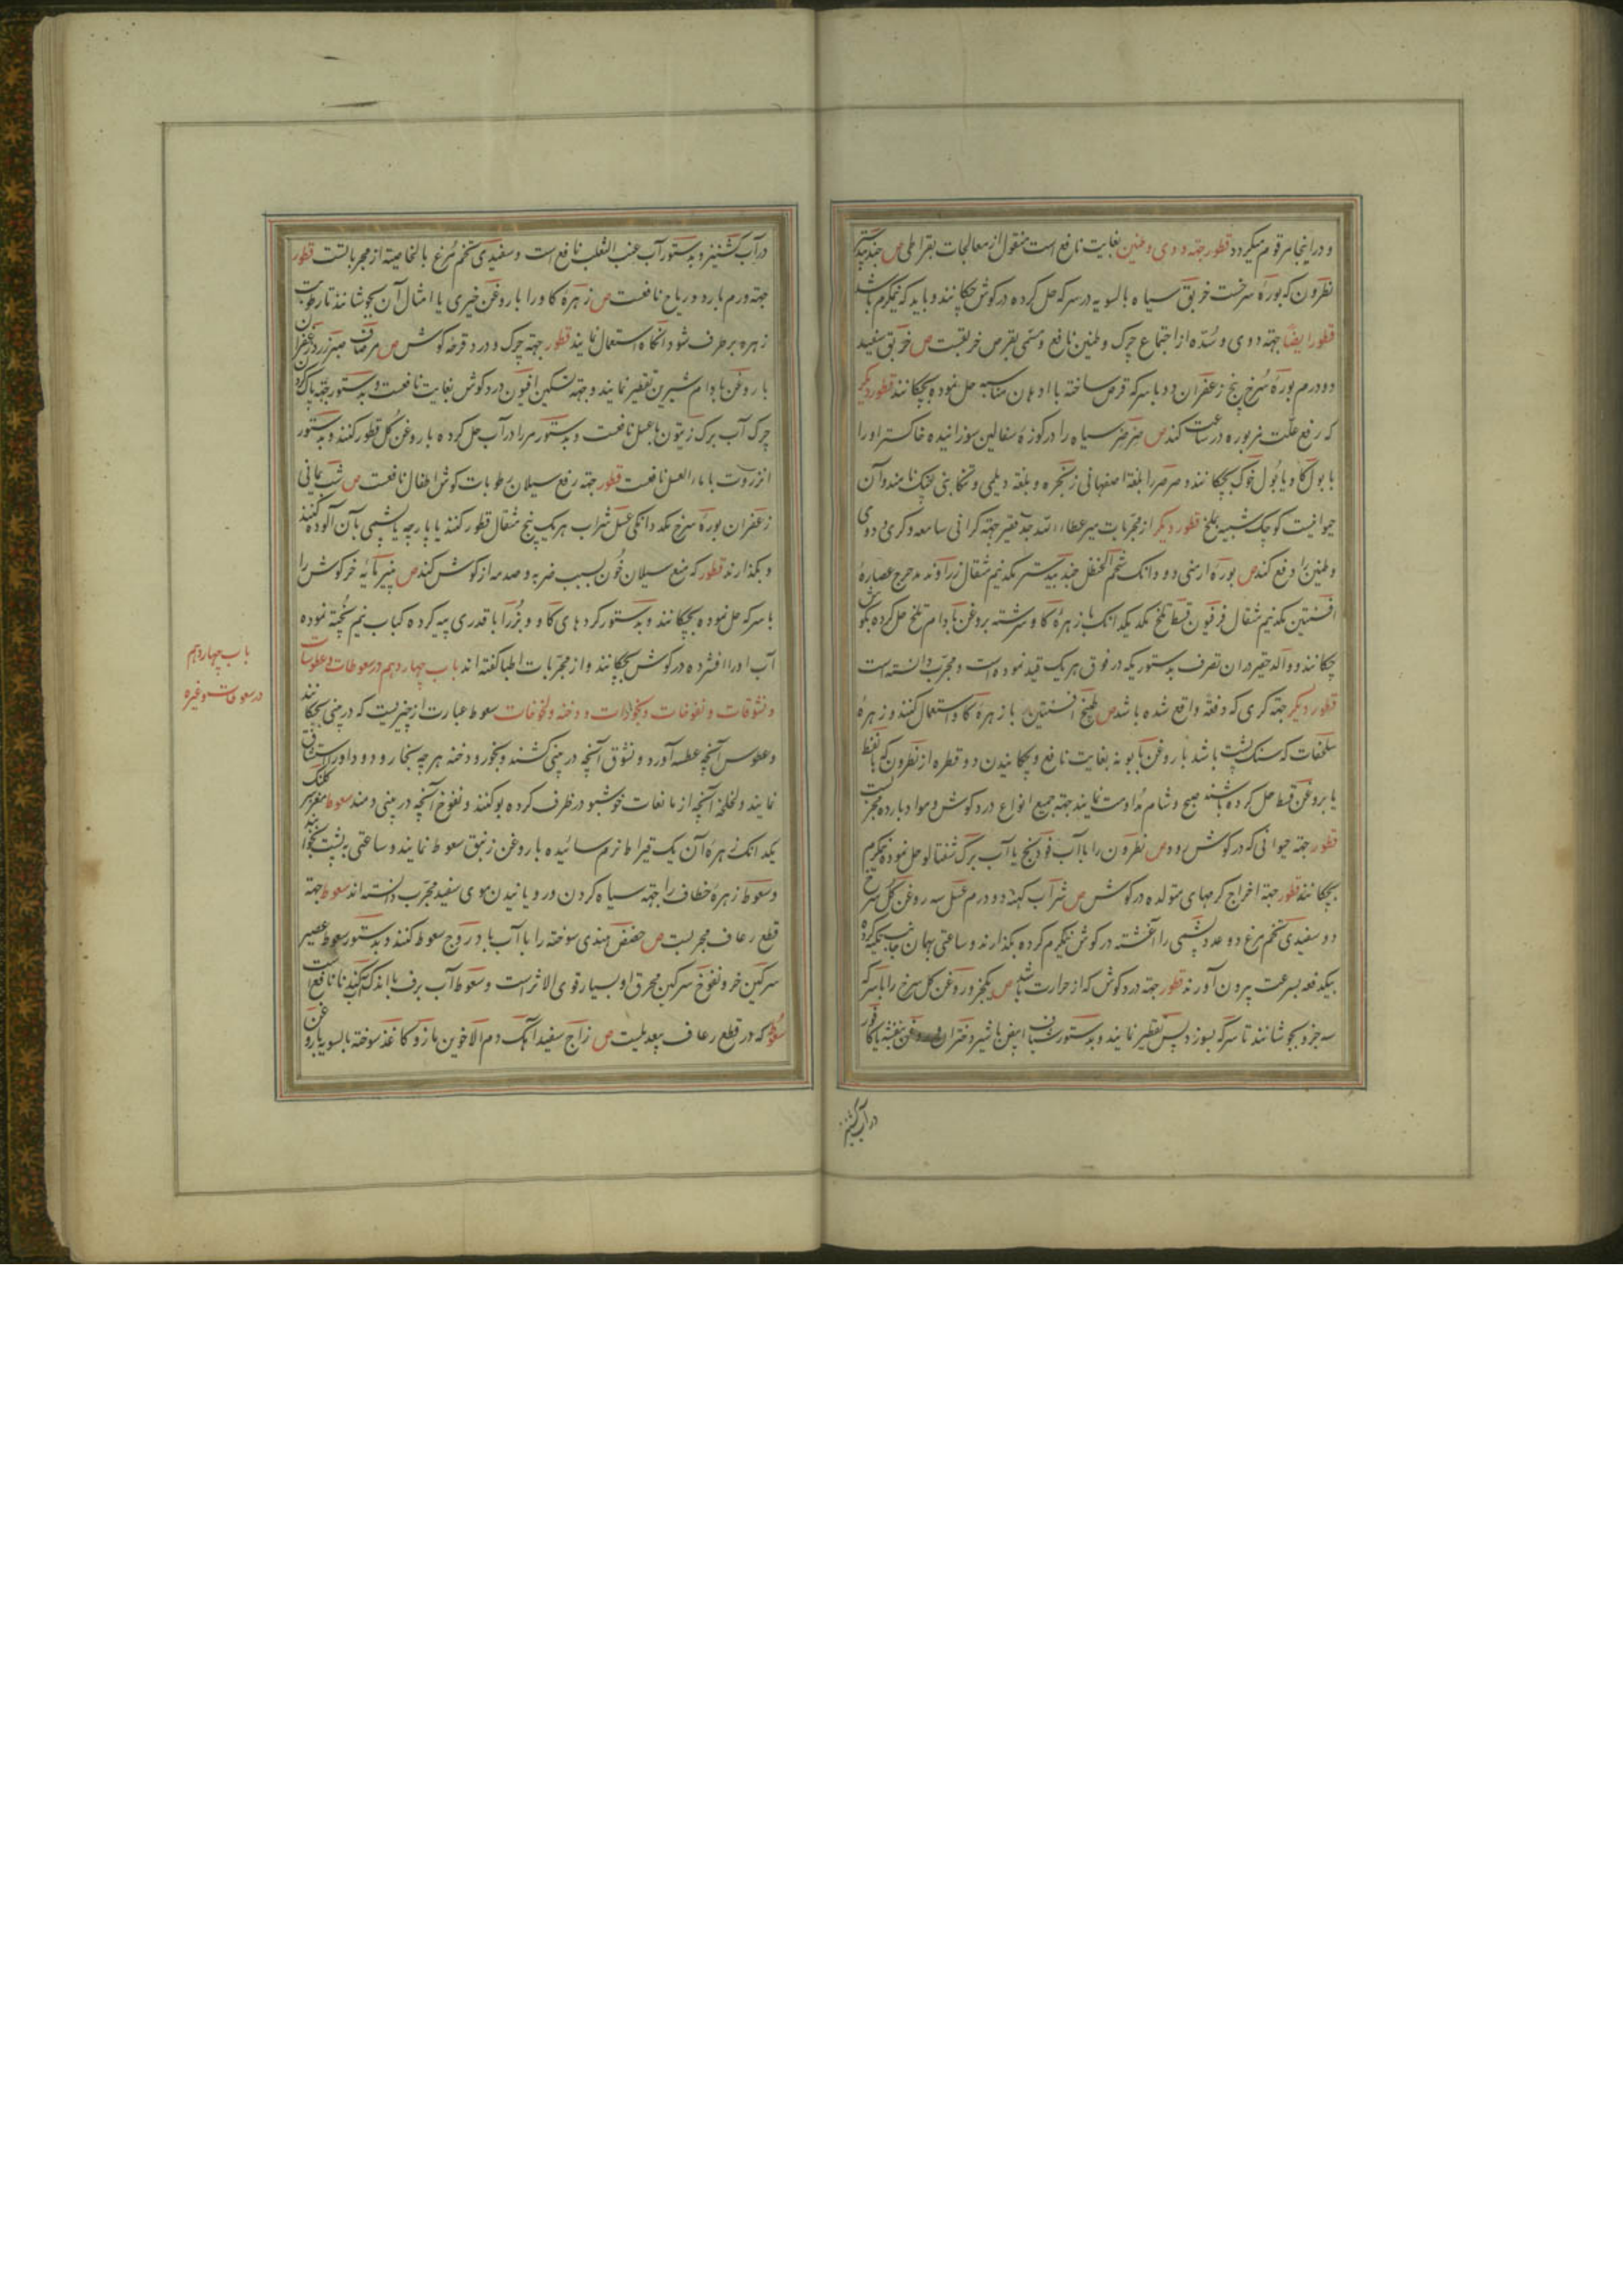 و در اینجا مرقوم میگردد قطور جهة دوی و طنین بغایت نافع است منقول از معالجات بقراطی ص جندبیدستر
نطرون که بوره سرخست خربق سیاه بالسویه در سرکه حل کرده در کوش چکانند و باید که نیمکرم باشد
قطور ایضا جهته دوی و سده از اجتماع چرک و طنین نافع و مسمی بقرص خربقست ص خربق سفید
دو درم بوره سرخ پنج زعفران دو با سرکه قرص ساخته با ادهان مناسبه حل نموده بچکانند قطور دیکر
که رفع علت مزبوره در ساعت کند ص صرصر سیاه را در کوزه سفالین سوزانیده خاکستر او را
با بول کاو یا بول خوک بچکانند و صرصر را بلغة اصفهانی زنجره و بلغة دیلمی و تنکابنی نامند و آن
حیوانیست کوچک شبیه بملخ قطور دیکر از مجربات میر عطاء الله جد فقیر جهته کرانی سامعه و کری و دوی
و طنین را دفع کند ص بوره ارمنی دو دانک شحم الحنظل جندبیدستر یکدنیم مثقال زراوند مدحرج عصاره
افسنتین یکدنیم مثقال فرفیون قسط تلخ یکد یکدانک با زهره کاو سرشته بروغن بادام تلخ حل کرده بکوش
چکانند و والد حقیر در ان تصرف بدستوریکه در فوق هر یک قید نموده است و مجرب دانسته است
قطور دیکر جهته کری که دفعة واقع شده باشد ص طبیخ افسنتین با زهره کاو استعمال کنند و زهره
سلحفات که سنک پشت باشد با روغن بابونه بغایت نافع و چکانیدن دو قطره از نطرون که با نفط
یا بروغن قسط حل کرده باشند صبح و شام مداومت نمایند جهته جمیع انواع درد کوش و مواد بارده مجربست
قطور جهته حیوانی که در کوش رود ص نطرون را با آب فودنج یا آب برک شفتالو حل نموده نیمکرم
بچکانند قطور جهته اخراج کرمهای متولده در کوش ص شراب کهنه دو درم عسل سه روغن کل سرخ
دو سفیدی تخم مرغ دو عدد پشمی را آغشته در کوش نیمکرم کرده بکذارند و ساعتی بهمان جانب تکیه کرده
بیکدفعه بسرعت بیرون آورند قطور جهته درد کوش که از حرارت باشد ص یکجزو روغن کل سرخ را با سرکه
سه جزو بجوشانند تا سرکه بسوزد پس تقطیر نمایند و بدستور شیاف ابیض با شیر دختران و روغن بنفشه با کافور
در آب کشنیز
در آب کشنیز و بدستور آب عنب الثعلب نافع است و سفیدی تخم مرغ بالخاصیته از مجرباتست قطور
جهته ورم بارد و ریاح نافعست ص زهره کاو را با روغن خیری یا امثال آن بجوشانند تا رطوبت
زهره برطرف شود آنکاه استعمال نمایند قطور جهته چرک و درد قرحه کوش ص مر صاف صبر زرد زعفران
با روغن بادام شیرین تقطیر نمایند و جهته تسکین افیون درد کوش بغایت نافعست و بدستور جهته پاک کردن
چرک آب برک زیتون با عسل نافعست و بدستور مر را در آب حل کرده با روغن کل قطور کنند و بدستور
انزروت با ماء العسل نافعست قطور جهته رفع سیلان رطوبات کوش اطفال نافعست ص شب یمانی
زعفران بوره سرخ یکد دانکی عسل شراب هر یک پنج مثقال قطور کنند یا پارچه یا پشمی بآن آلوده کنند
و بکذارند قطور که منع سیلان خون بسبب ضربه و صدمه از کوش کند ص پنیر مایه خرکوش را
با سرکه حل نموده بچکانند و بدستور کرده های کاو و بز را با قدری پیه کرده کباب نیم پخته نموده
آب او را افشرده در کوش بچکانند و از مجربات اطبا کفته اند باب چهاردهم در سعوطات و عطوسات
و نشوقات و نفوخات و بخورات و دخنه و لخلخات سعوط عبارت از چیزیست که در بینی بچکانند
و عطوس آنچه عطسه آورد و نشوق آنچه در بینی کشند و بخور و دخنه هر چه بخار و دود او را استنشاق
نمایند و لخلخه آنچه از مایعات خوشبو در ظرف کرده بو کنند و نفوخ آنچه در بینی دمند سعوط مغز سر کلنک
یکدانک زهره آن یک قیراط نرم سائیده با روغن زنبق سعوط نمایند و ساعتی به پشت بخوابند
و سعوط زهره خطاف را جهته سیاه کردن و رویانیدن موی سفید مجرب دانسته اند سعوط جهته
قطع رعاف مجربست ص حضض هندی سوخته را با آب بادروج سعوط کنند و بدستور سعوط عصیر
سرکین خر و نفوخ سرکین محرق او بسیار قوی الاثر است و سعوط آب برف با اندک کنند نافع است
سعوط که در قطع رعاف بیعدیلست ص زاج سفید آهک دم الاخوین مازو کاغذ سوخته بالسویه با روغن
باب چهاردهم
در سعوطات و غیره